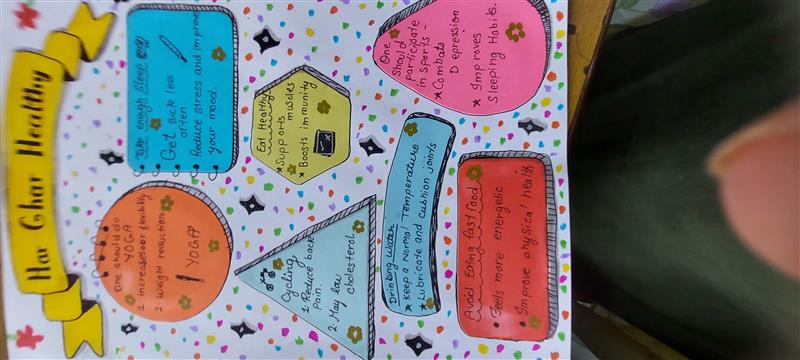 Har Ghar Healthy
One should do
YOGA
1. increases flexibility
2. weight reduction
YOGA
Take enough sleep
Get sick less
often.
Reduce stress and improve
your mood.
Cycling
1. Reduce back
pain.
2. May low
cholesterol
Eat Healthy
★ Supports muscles
★ Boosts immunity
Drinking Water
★ Keep Normal Temperature
★ Lubricate and cushion joints
One
should
participate
in sports -
★ Combats
Depression
★ Improves
Sleeping Habits.
Avoid Eating fastfood
• Feels more energetic
• Improve physical health